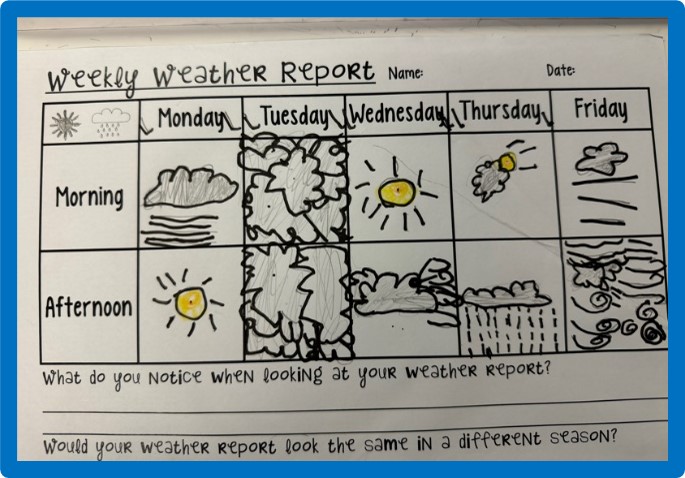 Weekly Weather Report Name: Date:
Monday Tuesday Wednesday Thursday Friday
Morning
Afternoon
What do you notice when looking at your weather report?
Would your weather report look the same in a different season?